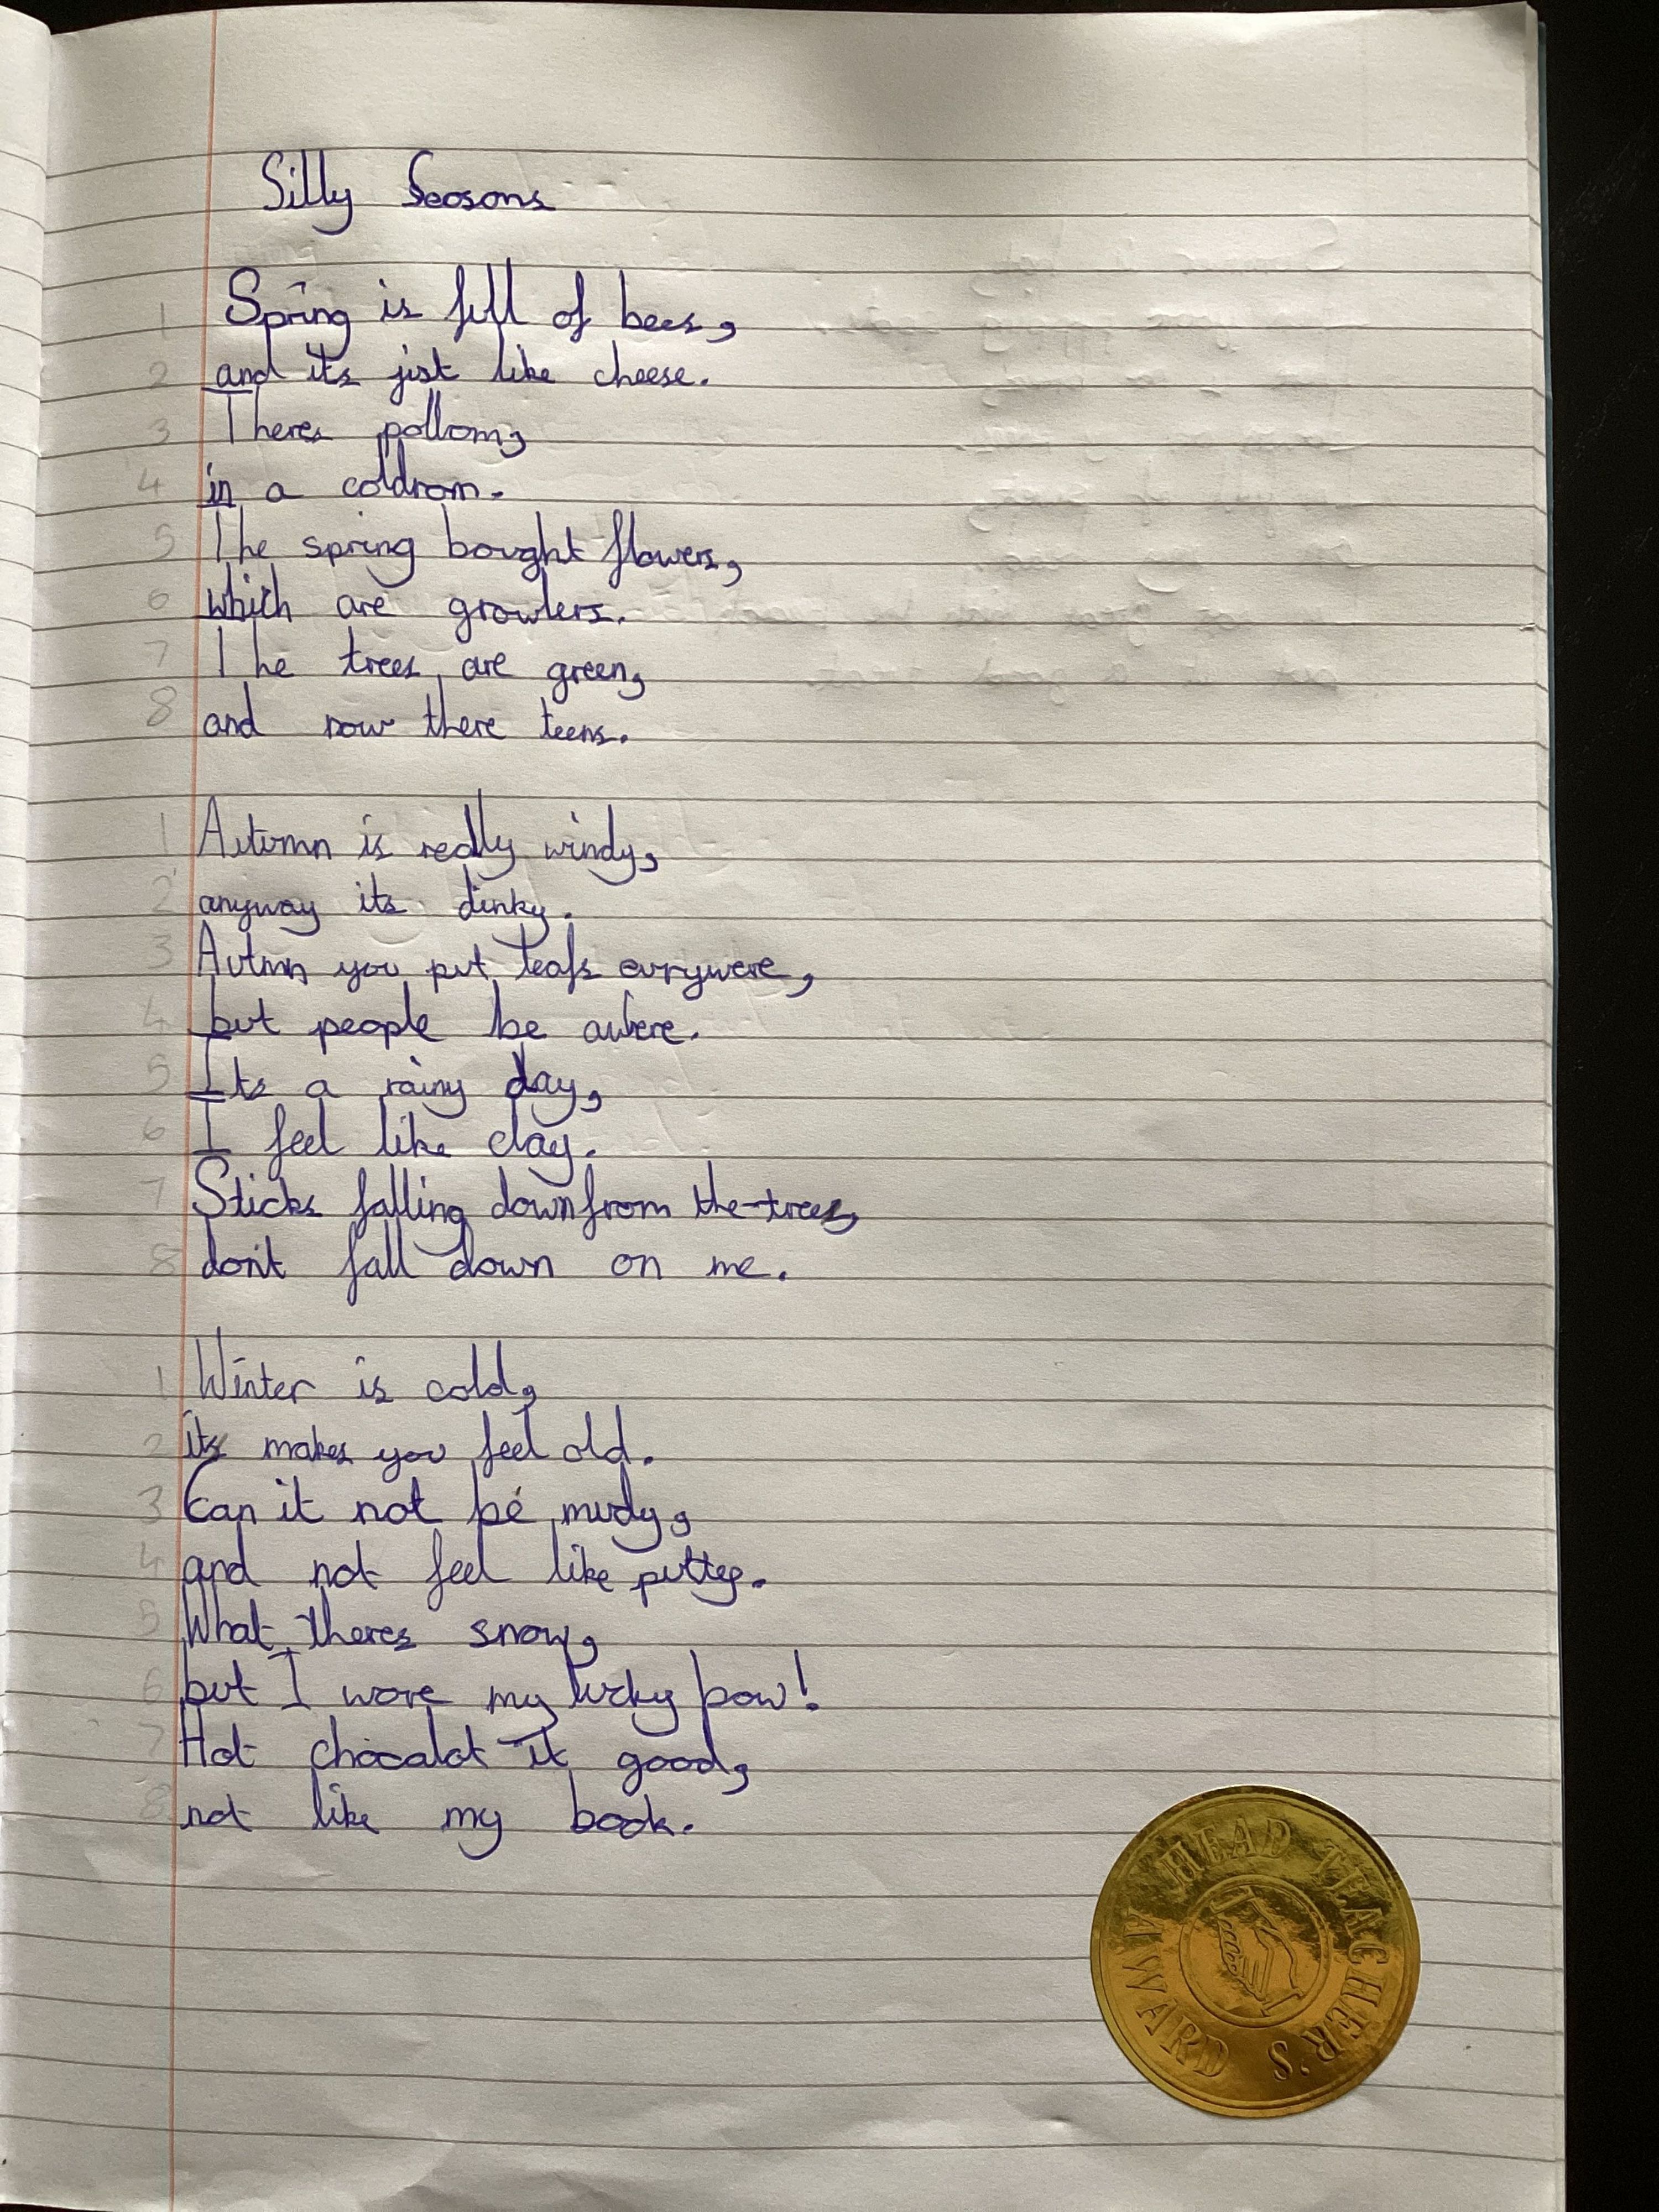 Silly Seosons
1 Spring is full of bees,
2 and its just like cheese.
3 Theres pollom,
4 in a coldrom.
5 The spring bought flowers,
6 which are growlers.
7 The trees are green,
8 and now there teens.
1 Autumn is really windy,
2 anyway its dinky.
3 Autmn you put leafs evrywere,
4 but people be awere.
5 Its a rainy day,
6 I feel like clay.
7 Sticks falling down from the trees,
8 don't fall down on me.
1 Winter is cold,
2 its makes you feel old.
3 Can it not be mudy,
4 and not feel like puttey.
5 What theres snow,
6 but I wore my lucky bow!
7 Hot chocalot it good,
8 not like my book.
HEAD TEACHER'S AWARD